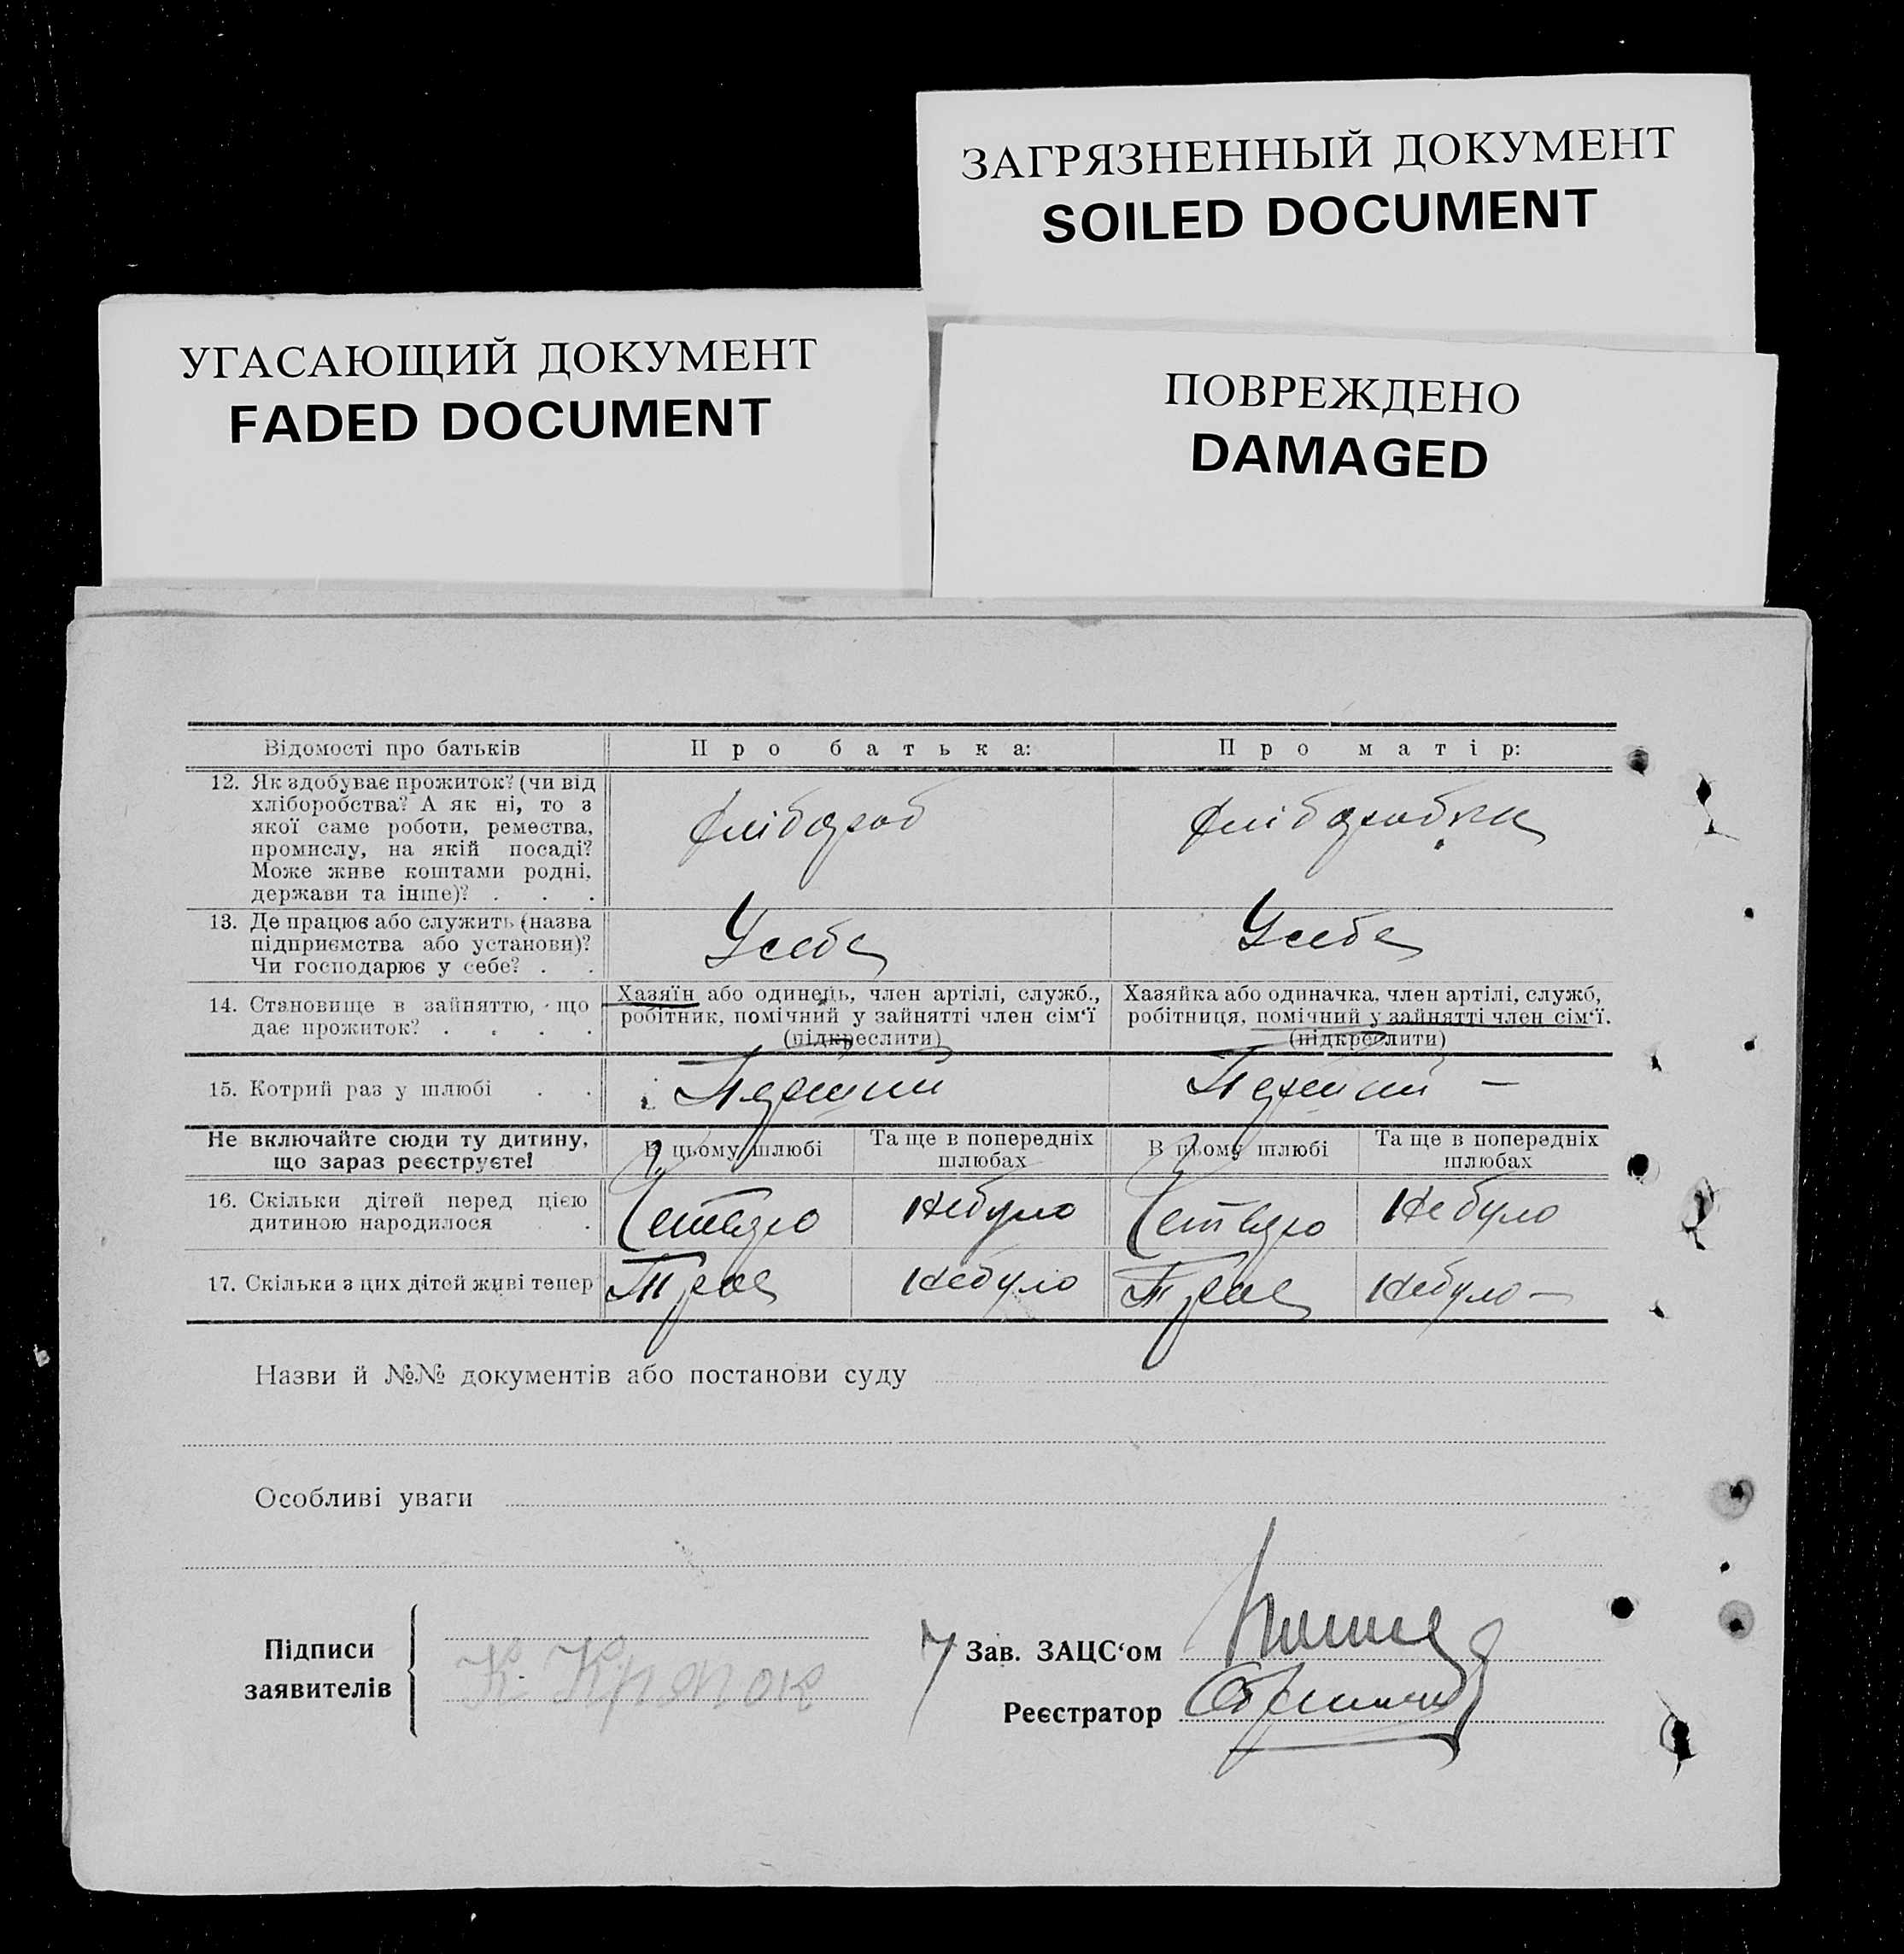 ЗАГРЯЗНЕННЫЙ ДОКУМЕНТ
SOILED DOCUMENT
УГАСАЮЩИЙ ДОКУМЕНТ
FADED DOCUMENT
ПОВРЕЖДЕНО
DAMAGED
Відомості про батьків
Про батька:
Про матір:
12. Як здобуває прожиток? (чи від
хліборобства? А як ні, то з
якої саме роботи, ремества,
промислу, на якій посаді?
Може живе коштами родні,
держави та інше)? . . .
Хлібороб
Хліборобка
13. Де працює або служить (назва
підприємства або установи)?
Чи господарює у себе? . .
У себе
У себе
14. Становище в зайняттю, що
дає прожиток? . . . .
Хазяїн або одинець, член артілі, служб.,
робітник, помічний у зайнятті член сім'ї
(підкреслити)
Хазяйка або одиначка, член артілі, служб,
робітниця, помічний у зайнятті член сім'ї.
(підкреслити)
15. Котрий раз у шлюбі . .
Перший
Перший —
Не включайте сюди ту дитину,
що зараз реєструєте!
В цьому шлюбі
Та ще в попередніх
шлюбах
В цьому шлюбі
Та ще в попередніх
шлюбах
16. Скільки дітей перед цією
дитиною народилося .
Четверо
Небуло
Четверо
Небуло
17. Скільки з цих дітей живі тепер
Троє
Небуло
Троє
Небуло —
Назви й №№ документів або постанови суду
Особливі уваги
Підписи
заявителів
К. Кряпок
Зав. ЗАЦС'ом
Реєстратор